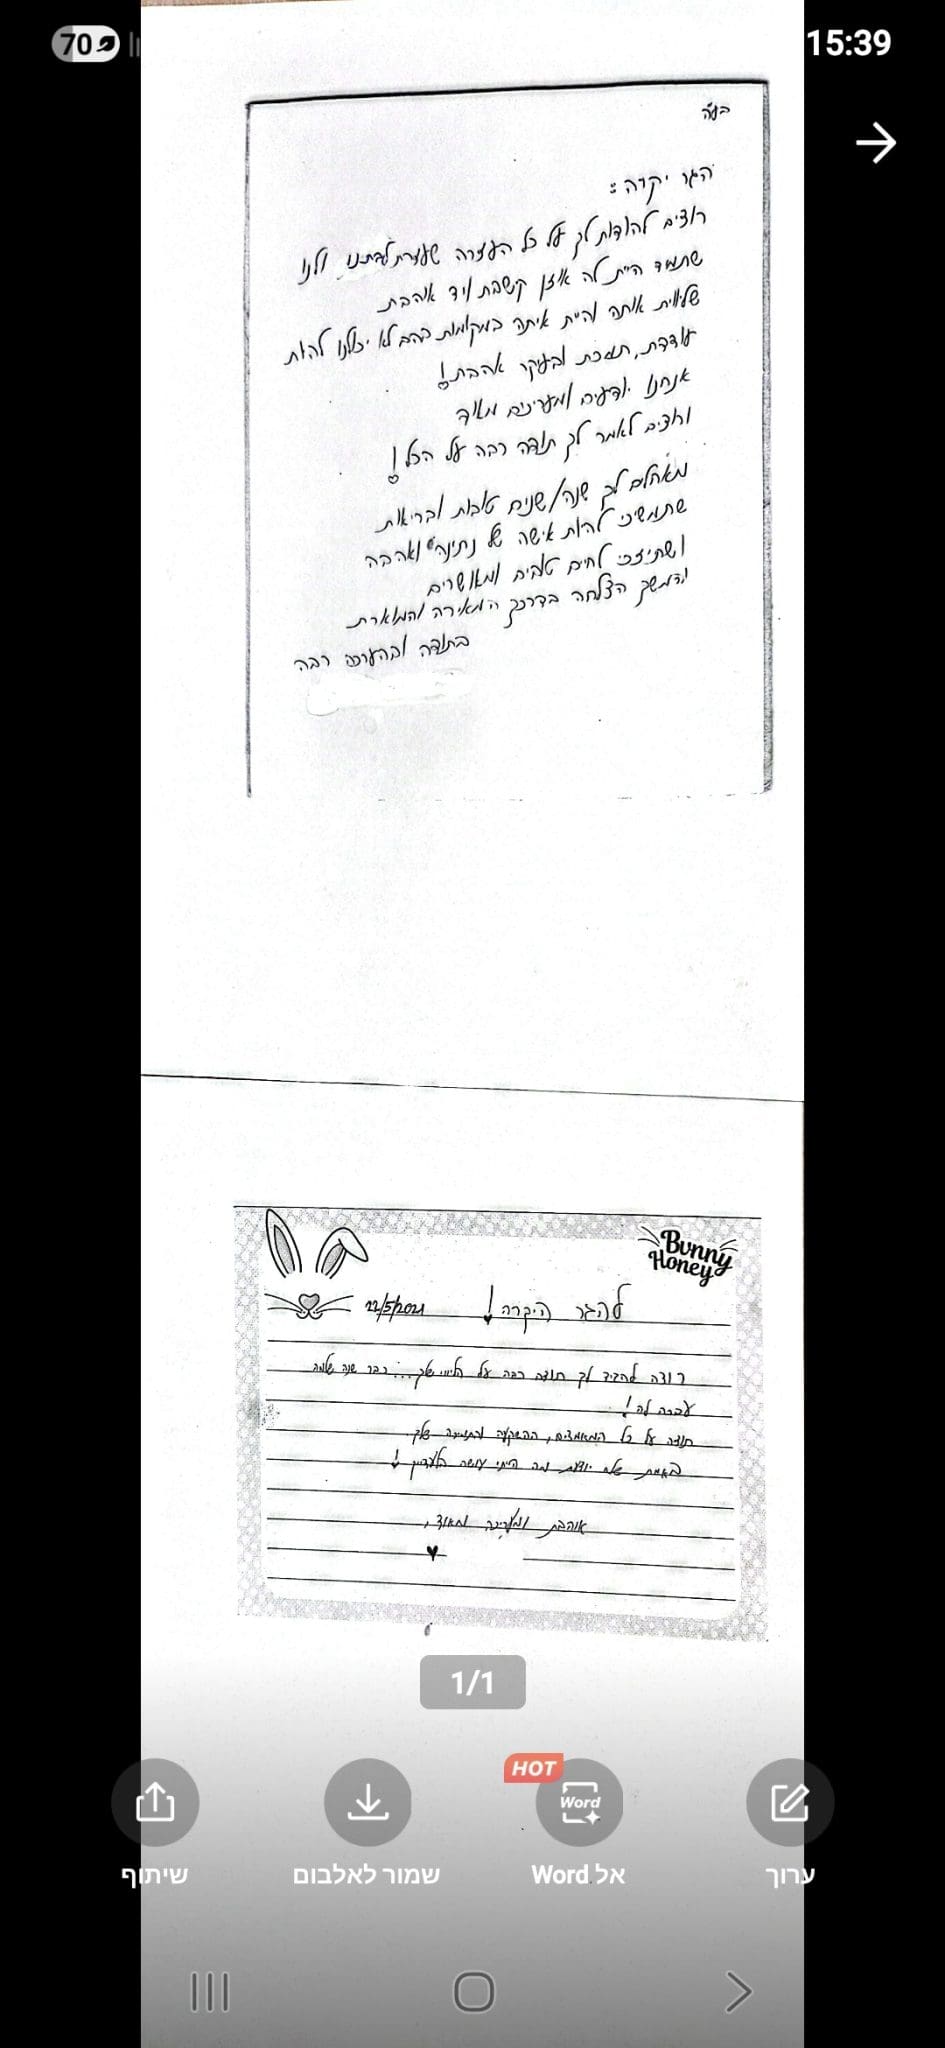 70
15:39
בע"ה
הגר יקרה:
רוצים להודות לך על כל העזרה שעזרת לבתנו ולנו
שתמיד היית לה אוזן קשבת ויד אוהבת
שליווית אותה והיית איתה במקומות בהם לא יכולנו להיות
עודדת, תמכת ובעיקר אהבת!
אנחנו יודעים ומעריכים מאוד
ורוצים לאמר לך תודה רבה על הכל!
מאחלים לך שנה/שנים טובות ובריאות
שתמשיכי להיות אישה של נתינה ואהבה
ושתיזכי לחיים טובים ומאושרים
והמשך הצלחה בדרכך המאירה והמוארת
בתודה ובהערכה רבה
Bunny
Honey
להגר היקרה! 22/5/2021
רוצה להגיד לך תודה רבה על הליווי שלך... כבר שנה שלמה
עברה לה!
תודה על כל המאמצים, ההשקעה והתמיכה שלך.
באמת שלא יודעת מה הייתי עושה בלעדייך!
אוהבת ומעריכה מאוד,
1/1
HOT
Word
ערוך
אל Word
שמור לאלבום
שיתוף